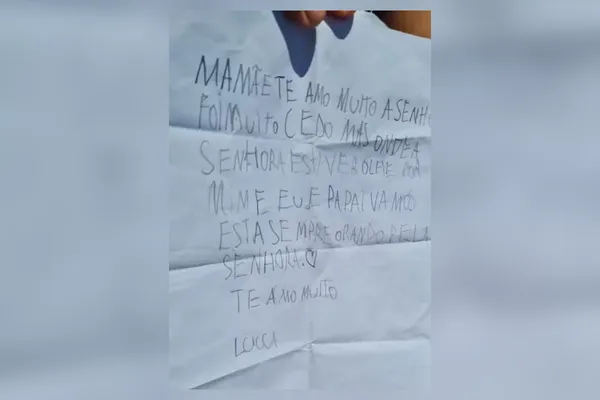 MAMÃE TE AMO MUITO A SENH
FOI MUITO CEDO MAS ONDE A
SENHORA ESTIVER OLHE POR
MIM E EU E PAPAI VAMOS
ESTA SEMPRE ORANDO PELA
SENHORA.♡
TE AMO MUITO
LUCCA